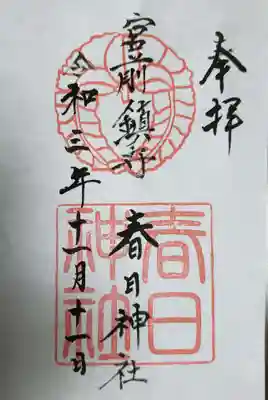 奉拝
宮前鎮守
春日神社
令和三年十一月十一日
春日神社